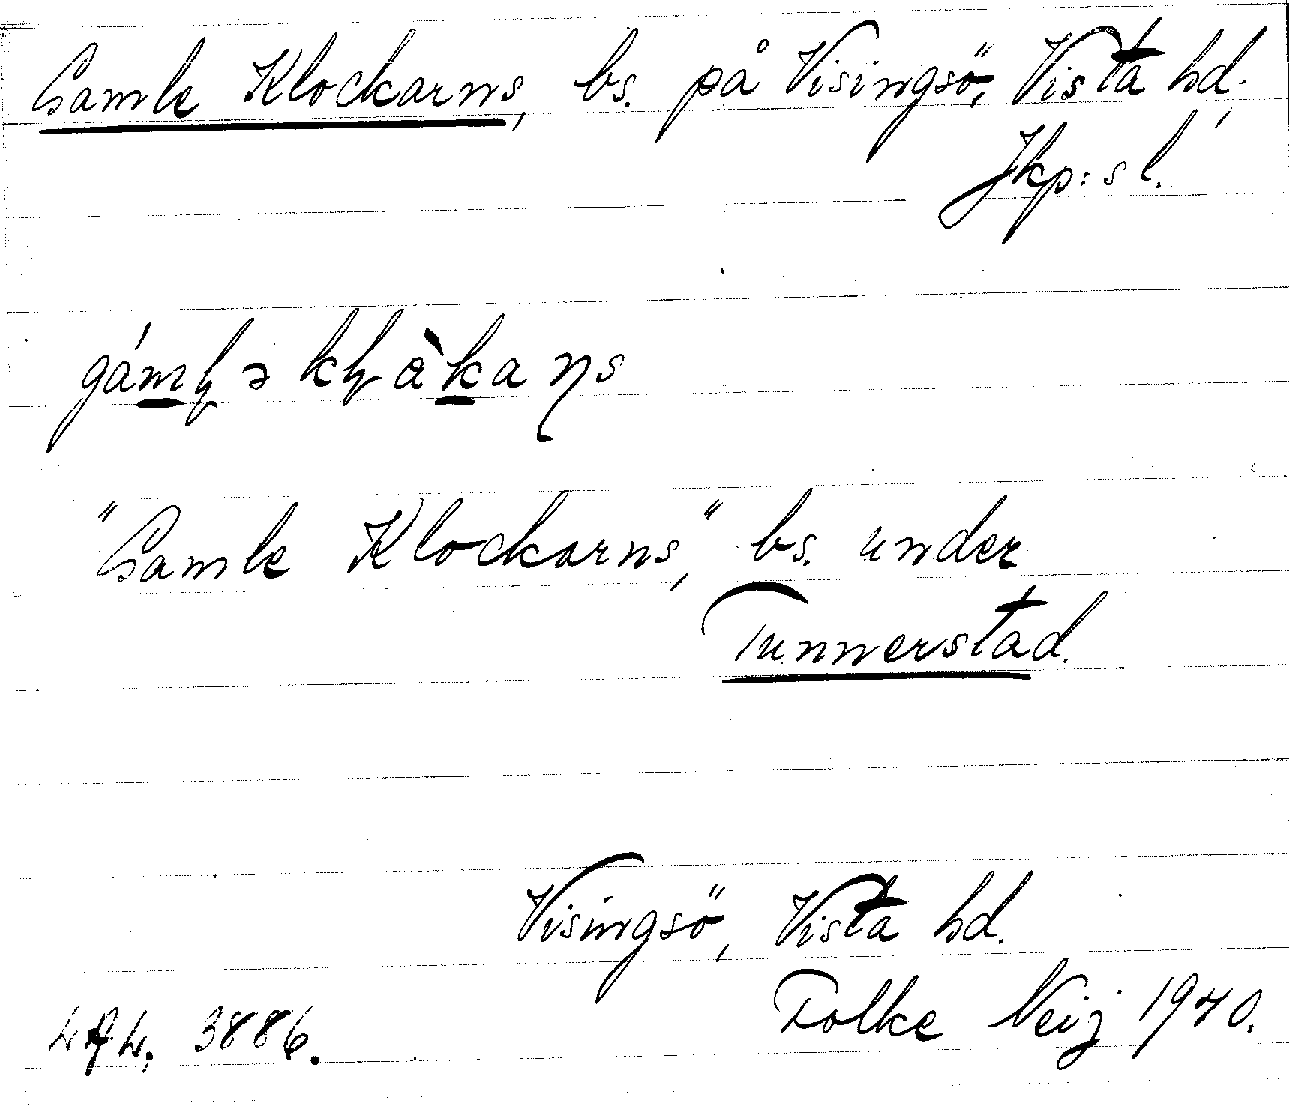 Gamle Klockarns, bs. på Visingsö, Vista hd,
Jkp:s l.
"Gamle Klockarns," bs. under
Tunnerstad.
Visingsö, Vista hd.
Folke Neij 1940.
3886.